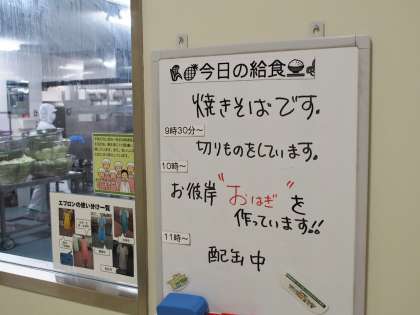 今日の給食
焼きそばです。
9時30分～
切りものをしています。
10時～
お彼岸"おはぎ"を
作っています!!
11時～
配缶中
エプロンの使い分け一覧